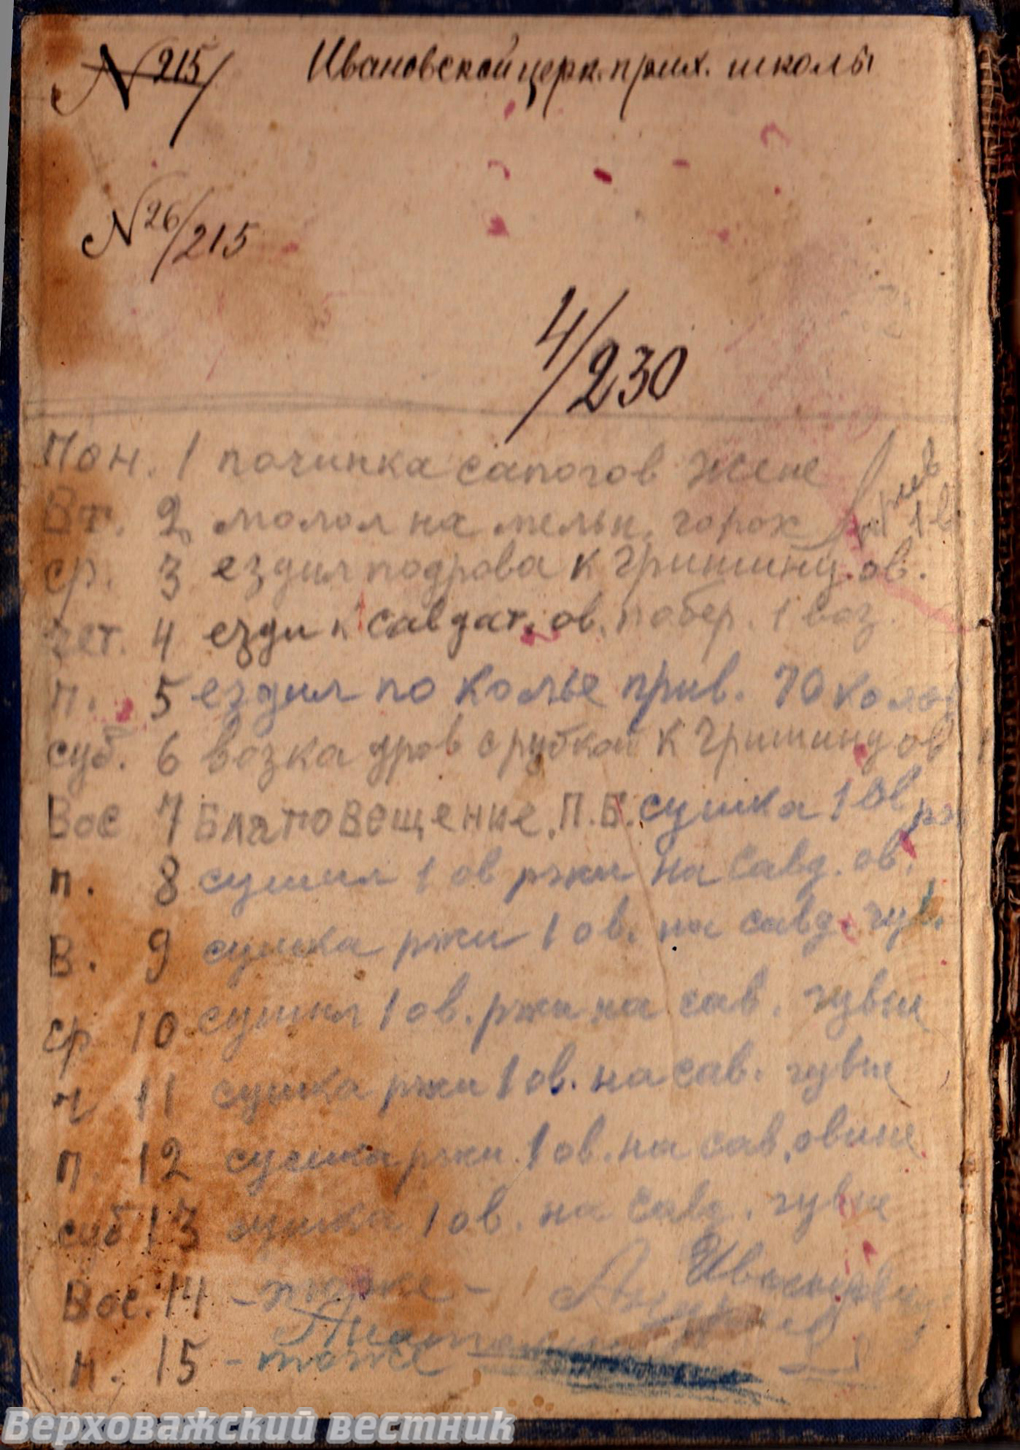 N 215/ Ивановской церк. прих. школы
N 26/215
4/230
Пон. 1 починка сапогов Жене
Вт. 2 молол на мельн. горох 1 в
ср. 3 ездил подрова к Гришину. ов.
чет. 4 езди к савдат. ов. побер. 1 воз.
п. 5 ездил по колье прив. 70 коло
суб. 6 возка дров с рубкой к Гришину ов
Вос 7 Благовещение. П.Б. сушка 1 ов рж
п. 8 сушил 1 ов ржи на Савд. ов.
В. 9 сушка ржи 1 ов. на савд. гув.
ср 10 сушил 1 ов. ржи на сав. гувне
ч 11 сушка ржи 1 ов. на сав. гувне
п. 12 сушка ржи 1 ов. на сав. овине
суб 13 сушка 1 ов. на Савд. гувне
Вос. 14 - тоже -
н. 15 - тоже
Верховажский вестник